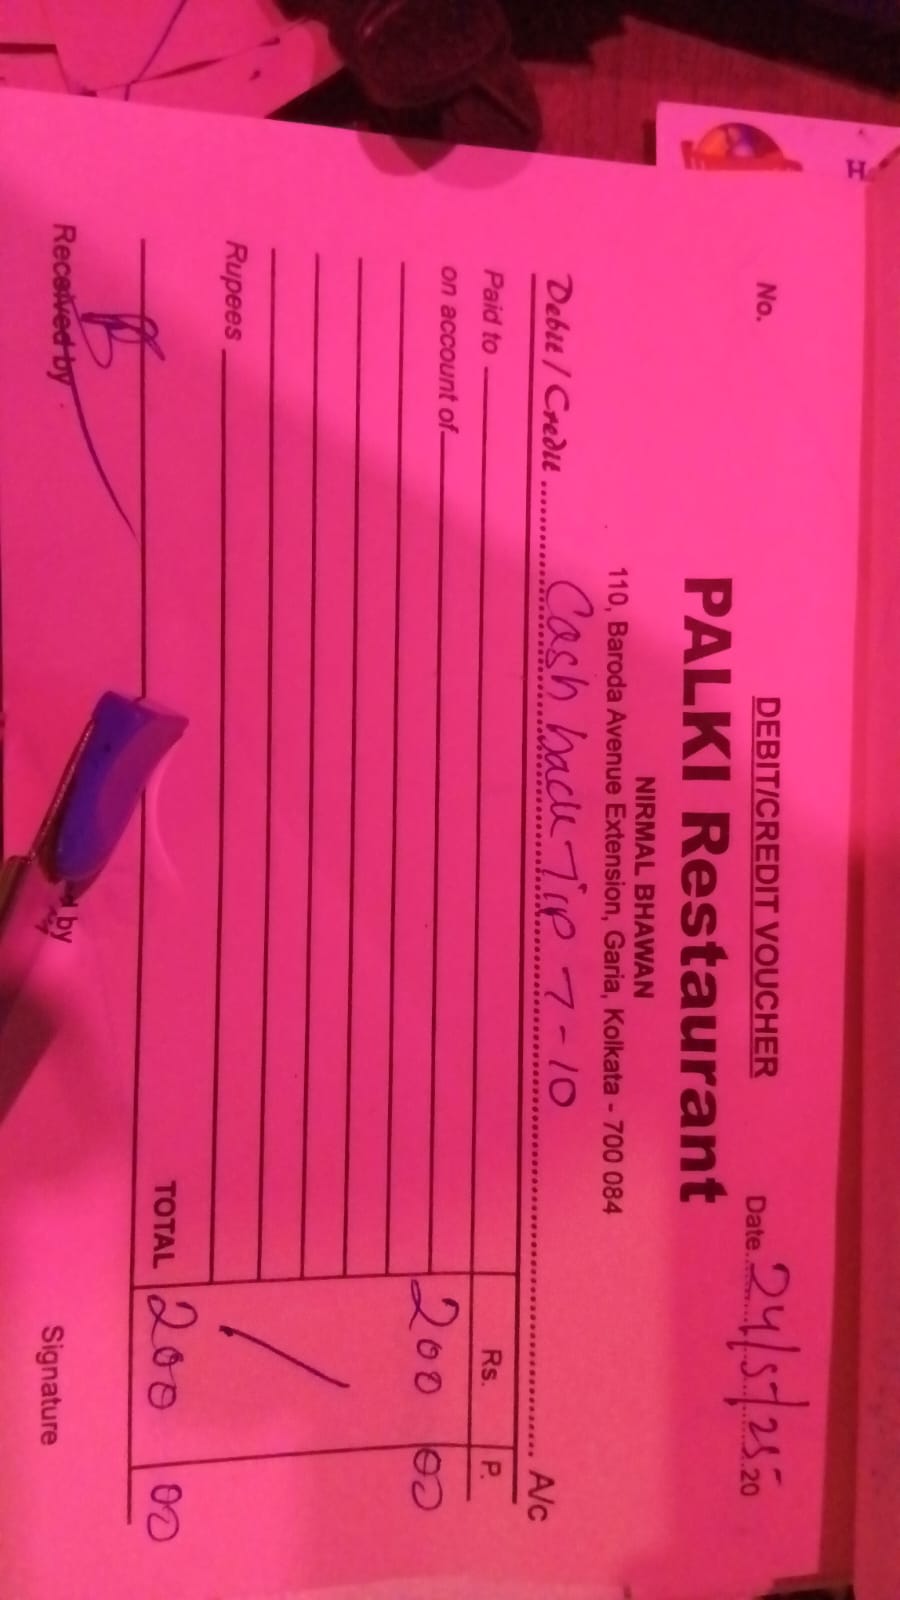 H
DEBIT/CREDIT VOUCHER
No. Date 24/5/25 20
PALKI Restaurant
NIRMAL BHAWAN
110, Baroda Avenue Extension, Garia, Kolkata - 700 084
Debit / Credit Cash back Tip 7-10 A/c
Paid to Rs. P.
on account of 200 00
Rupees
TOTAL 200 00
Received by by Signature